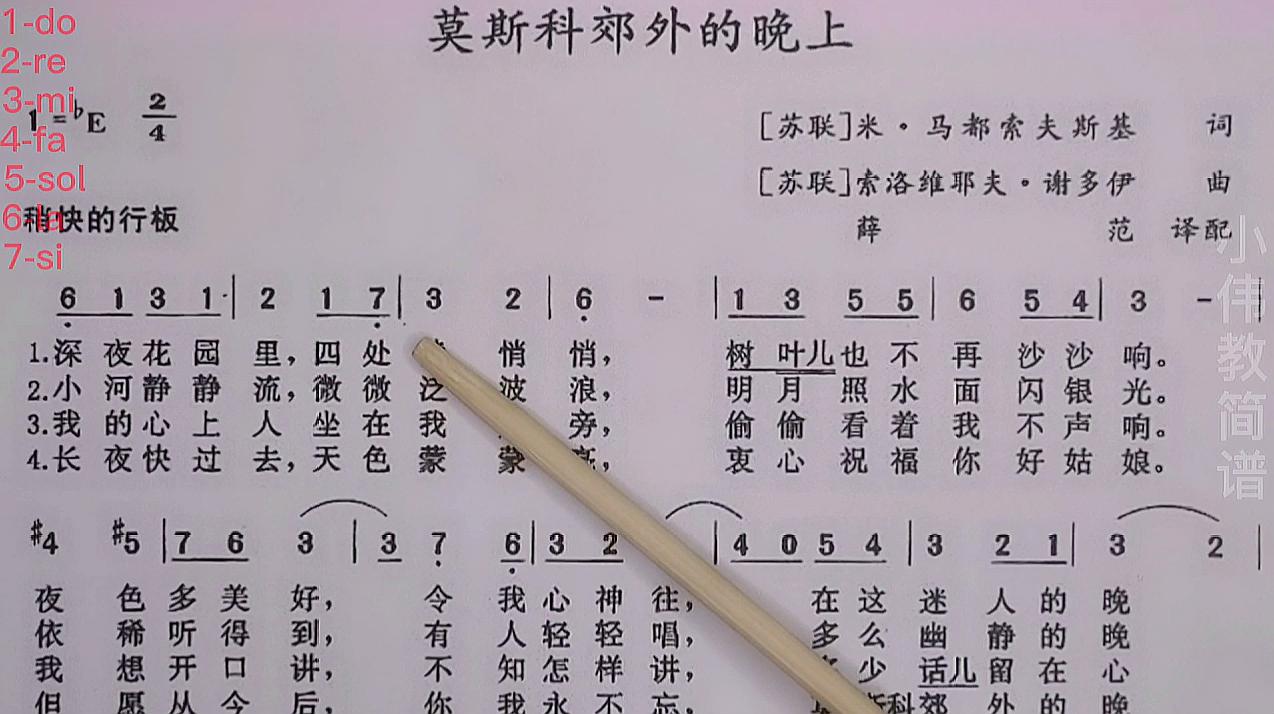 莫斯科郊外的晚上
1-do
2-re
3-mi
4-fa
5-sol
6-la
7-si
1=♭E 2/4
[苏联]米·马都索夫斯基 词
[苏联]索洛维耶夫·谢多伊 曲
稍快的行板
薛 范 译配
6 1 3 1· | 2 1 7 | 3 2 | 6 - | 1 3 5 5 | 6 5 4 | 3 - |
1.深夜花园里，四处 悄悄， 树叶儿也不再沙沙响。
2.小河静静流，微微泛波浪， 明月照水面闪银光。
3.我的心上人坐在我 旁， 偷偷看着我不声响。
4.长夜快过去，天色蒙蒙亮， 衷心祝福你好姑娘。
#4 #5 | 7 6 3 | 3 7 6 | 3 2 | 4 0 5 4 | 3 2 1 | 3 2 |
夜色多美好， 令我心神往， 在这迷人的晚
依稀听得到， 有人轻轻唱， 多么幽静的晚
我想开口讲， 不知怎样讲， 少话儿留在心
但愿从今后， 你我永不忘， 斯科郊外的晚
小伟教简谱